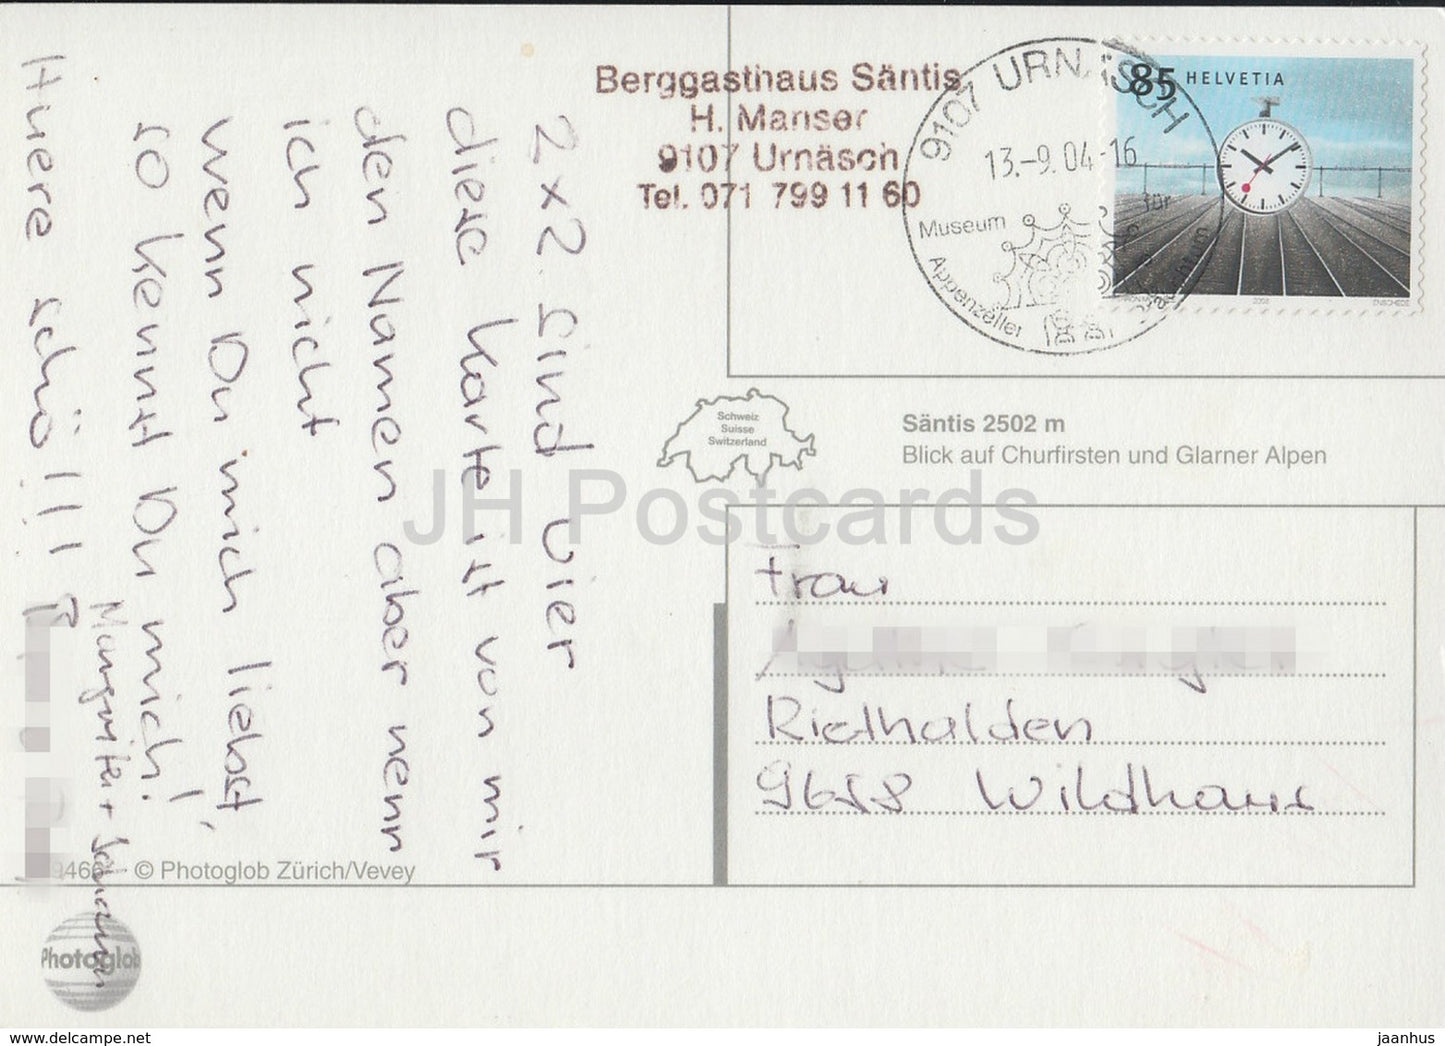 Berggasthaus Säntis
H. Manser
9107 Urnäsch
Tel. 071 799 11 60
9107 URNÄSCH
13.-9.04-16
Museum für
Appenzeller
85 HELVETIA
2003
ENSCHEDE
2 x 2 sind vier
diese Karte ist von mir
den Namen aber nenn
ich nicht
wenn Du mich liebst,
so kennst Du mich!
Huere schö!!!
Schweiz
Suisse
Switzerland
Säntis 2502 m
Blick auf Churfirsten und Glarner Alpen
JH Postcards
Frau
Riethalden
9658 Wildhaus
© Photoglob Zürich/Vevey
Photoglob
hippostcard.com/store/jhpostcards.net
jaanhus